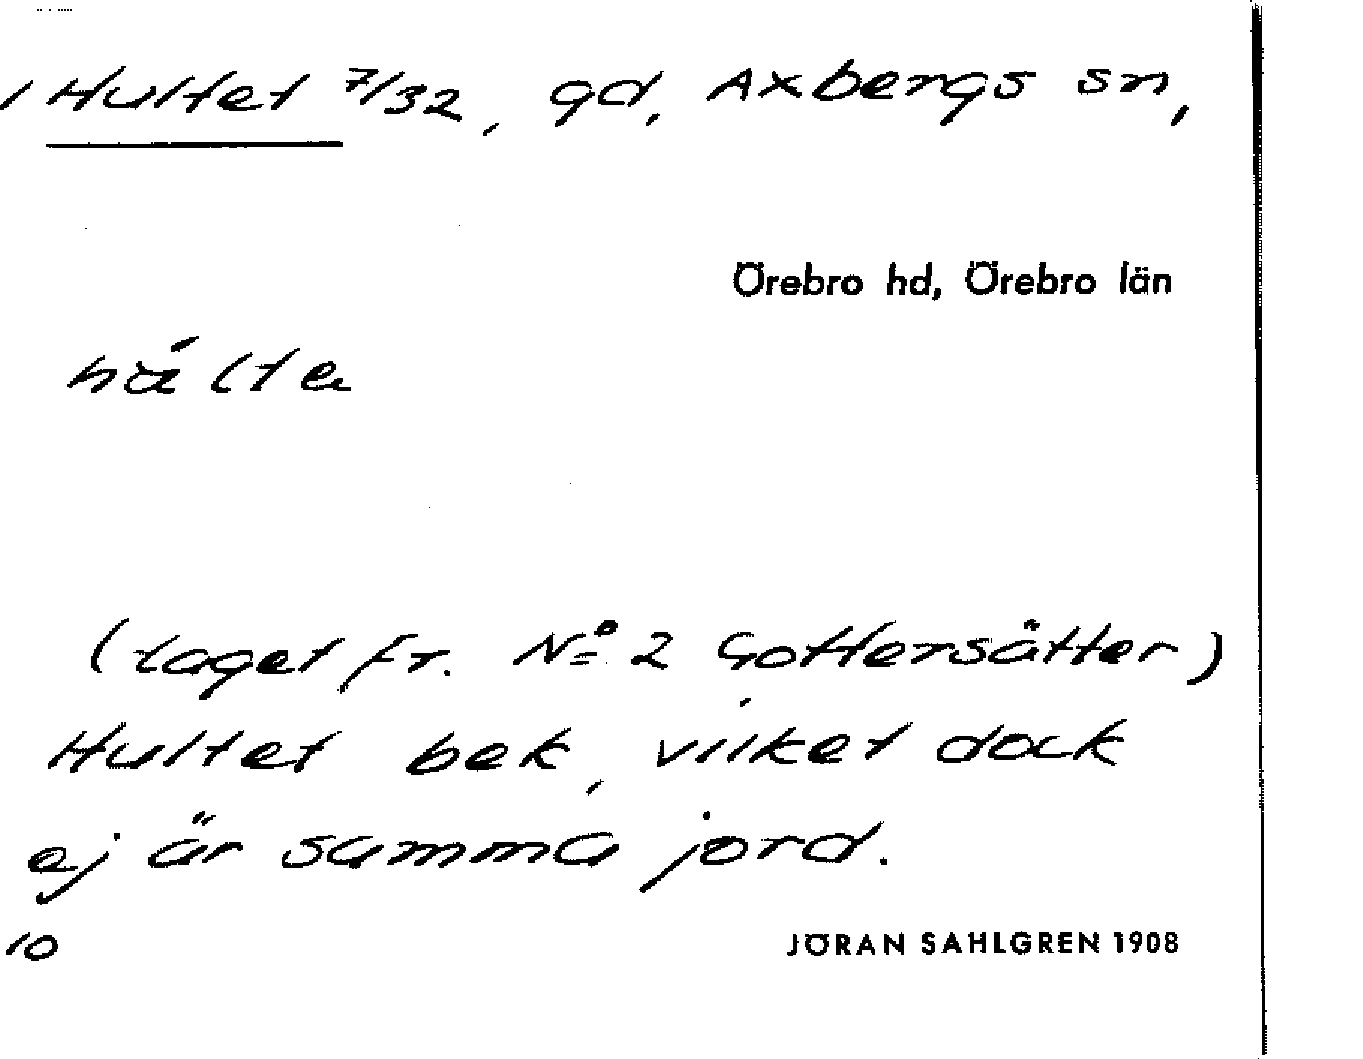 Hultet 7/32, gd, Axbergs sn,
Örebro hd, Örebro län
hälta
(taget fr. No 2 Gottersätter)
Hultet bek, vilket dock
ej är samma jord.
10
JÖRAN SAHLGREN 1908